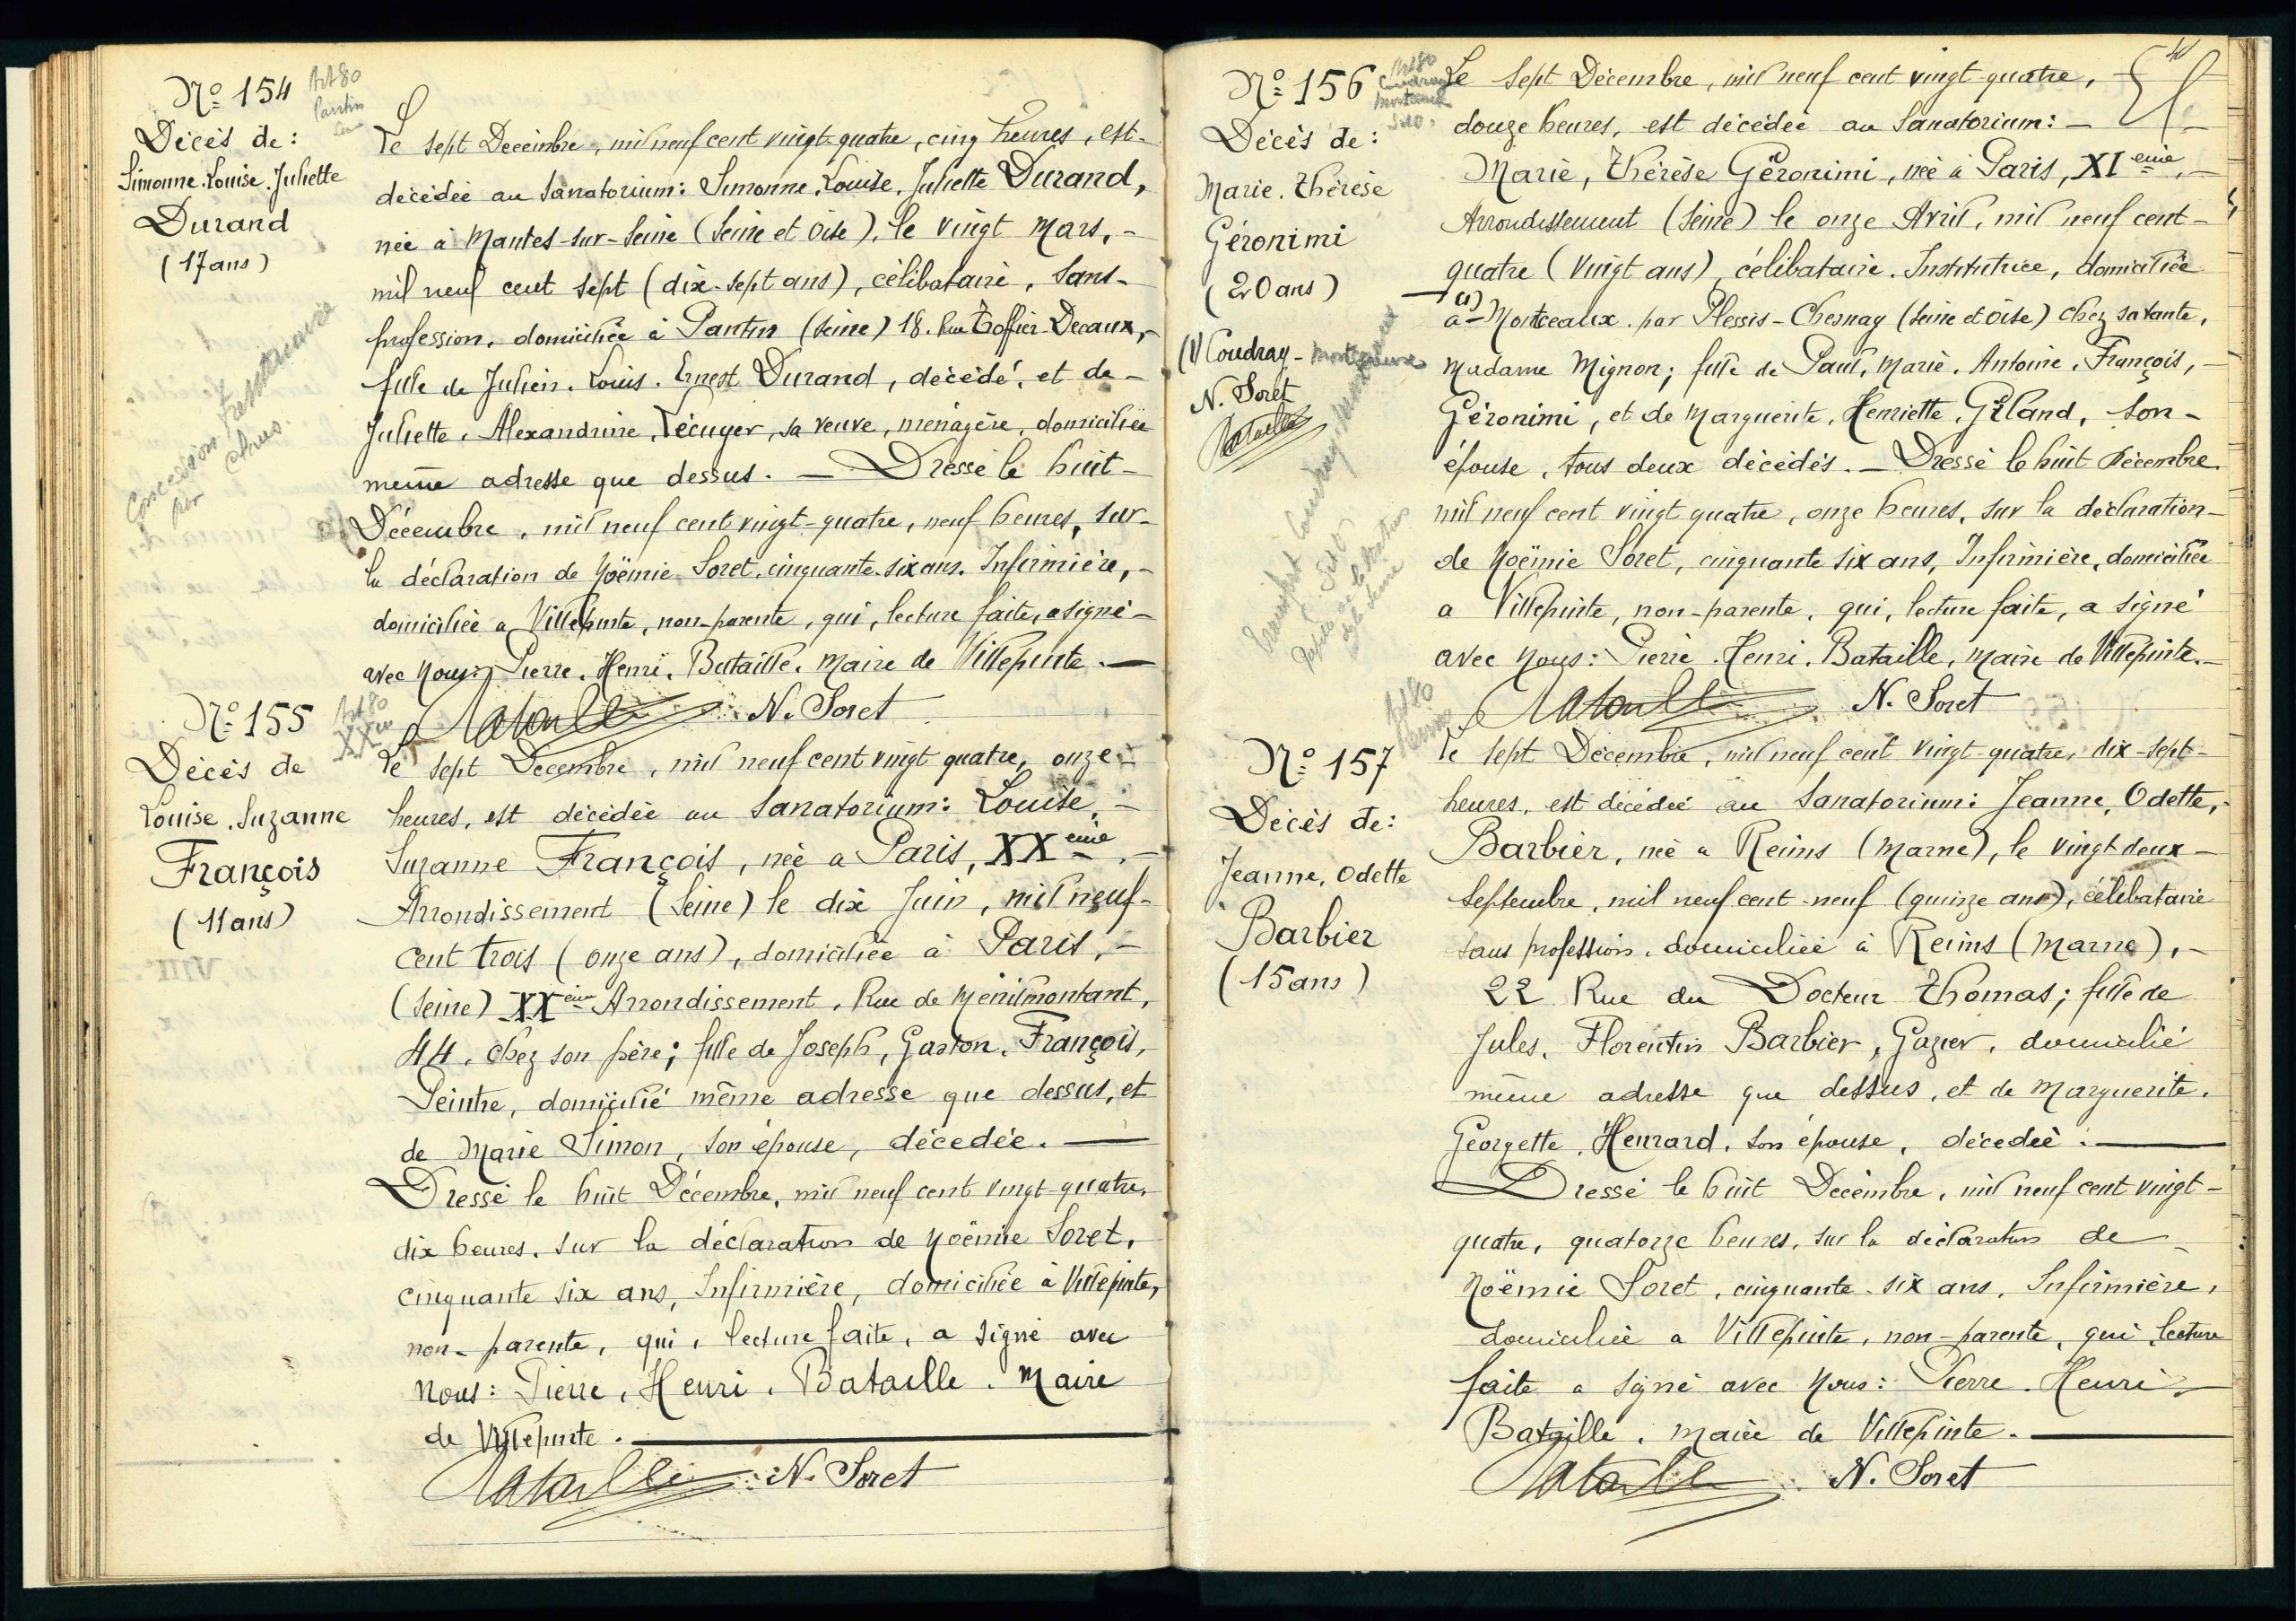 N° 154
Art 80
Pantin
Décès de :
Simonne. Louise. Juliette
Durand
(17 ans)
Concession
par
Le sept Décembre, mil neuf cent vingt-quatre, cinq heures, est-
décédée au Sanatorium : Simonne. Louise. Juliette Durand,
née à Mantes-sur-Seine (Seine et Oise), le vingt Mars, -
mil neuf cent sept (dix-sept ans), célibataire, Sans-
profession, domiciliée à Pantin (Seine) 18. Rue Decaux, -
fille de Julien. Louis. Ernest Durand, décédé, et de -
Juliette. Alexandrine. Lécuyer, sa veuve, ménagère, domiciliée
même adresse que dessus. — Dressé le huit -
Décembre, mil neuf cent vingt-quatre, neuf heures, sur-
la déclaration de Noëmie Soret. cinquante-six ans. Infirmière, -
domiciliée a Villepinte, non-parente, qui, lecture faite, a signé -
avec Nous : Pierre. Henri. Bataille. Maire de Villepinte. —
Bataille N. Soret
N° 155
Art 80
XXe
Décès de
Louise. Suzanne
François
(11 ans)
Le sept Décembre, mil neuf cent vingt quatre, onze -
heures, est décédée au Sanatorium : Louise, -
Suzanne François, née a Paris, XXeme, -
Arrondissement (Seine) le dix Juin, mil neuf -
cent trois (onze ans), domiciliée à Paris, -
(Seine) XXeme Arrondissement, Rue de Menilmontant,
44, chez son père ; fille de Joseph, Gaston. François,
Peintre, domicilié même adresse que dessus, et
de Marie Simon, son épouse, décedée. —
Dressé le huit Décembre, mil neuf cent vingt-quatre,
dix heures. sur la déclaration de Noëmie Soret,
cinquante six ans, Infirmière, domiciliée à Villepinte,
non-parente, qui, lecture faite, a signé avec
Nous : Pierre, Henri. Bataille. Maire
de Villepinte. —
Bataille N. Soret
N° 156
Art 80
Coudray
Montceaux
S et O.
Décès de :
Marie. Thérèse
Géronimi
(20 ans)
(1) Coudray - Montceaux
N. Soret
Bataille
Transport Coudray-Montceaux
S et O
41
Le Sept Décembre, mil neuf cent vingt-quatre,
douze heures, est décédée au Sanatorium : -
Marie, Thérèse Géronimi, née à Paris, XIeme, -
Arrondissement (Seine) le onze Avril, mil neuf cent -
quatre (vingt ans), célibataire. Institutrice, domiciliée
(1)
à - Montceaux. par Plessis-Chesnay (Seine et Oise) chez sa tante,
Madame Mignon ; fille de Paul, Marie. Antoine. François, -
Géronimi, et de Marguerite, Henriette. Giland, son -
épouse, tous deux décédés. — Dressé le huit Décembre.
mil neuf cent vingt quatre, onze heures, sur la déclaration -
de Noëmie Soret, cinquante six ans, Infirmière, domiciliée
a Villepinte, non-parente, qui, lecture faite, a signé
avec Nous : Pierre. Henri. Bataille, Maire de Villepinte. -
Bataille N. Soret
N° 157
Art 80
Reims
Décès de :
Jeanne, Odette
Barbier
(15 ans)
Le sept Décembre, mil neuf cent vingt-quatre, dix-sept -
heures, est décédée au Sanatorium : Jeanne, Odette, -
Barbier, née a Reims (Marne), le vingt deux -
Septembre, mil neuf cent-neuf (quinze ans), célibataire
sans profession. domiciliée à Reims (Marne), -
22 Rue du Docteur Thomas ; fille de
Jules, Florentin Barbier, Gazier, domicilié
même adresse que dessus, et de Marguerite.
Georgette, Henrard. son épouse, décedée. —
Dressé le huit Décembre, mil neuf cent vingt -
quatre, quatorze heures, sur la déclaration de -
Noëmie Soret, cinquante-six ans, Infirmière,
domiciliée a Villepinte, non-parente, qui, lecture
faite a signé avec Nous : Pierre. Henri -
Bataille. maire de Villepinte. —
Bataille N. Soret